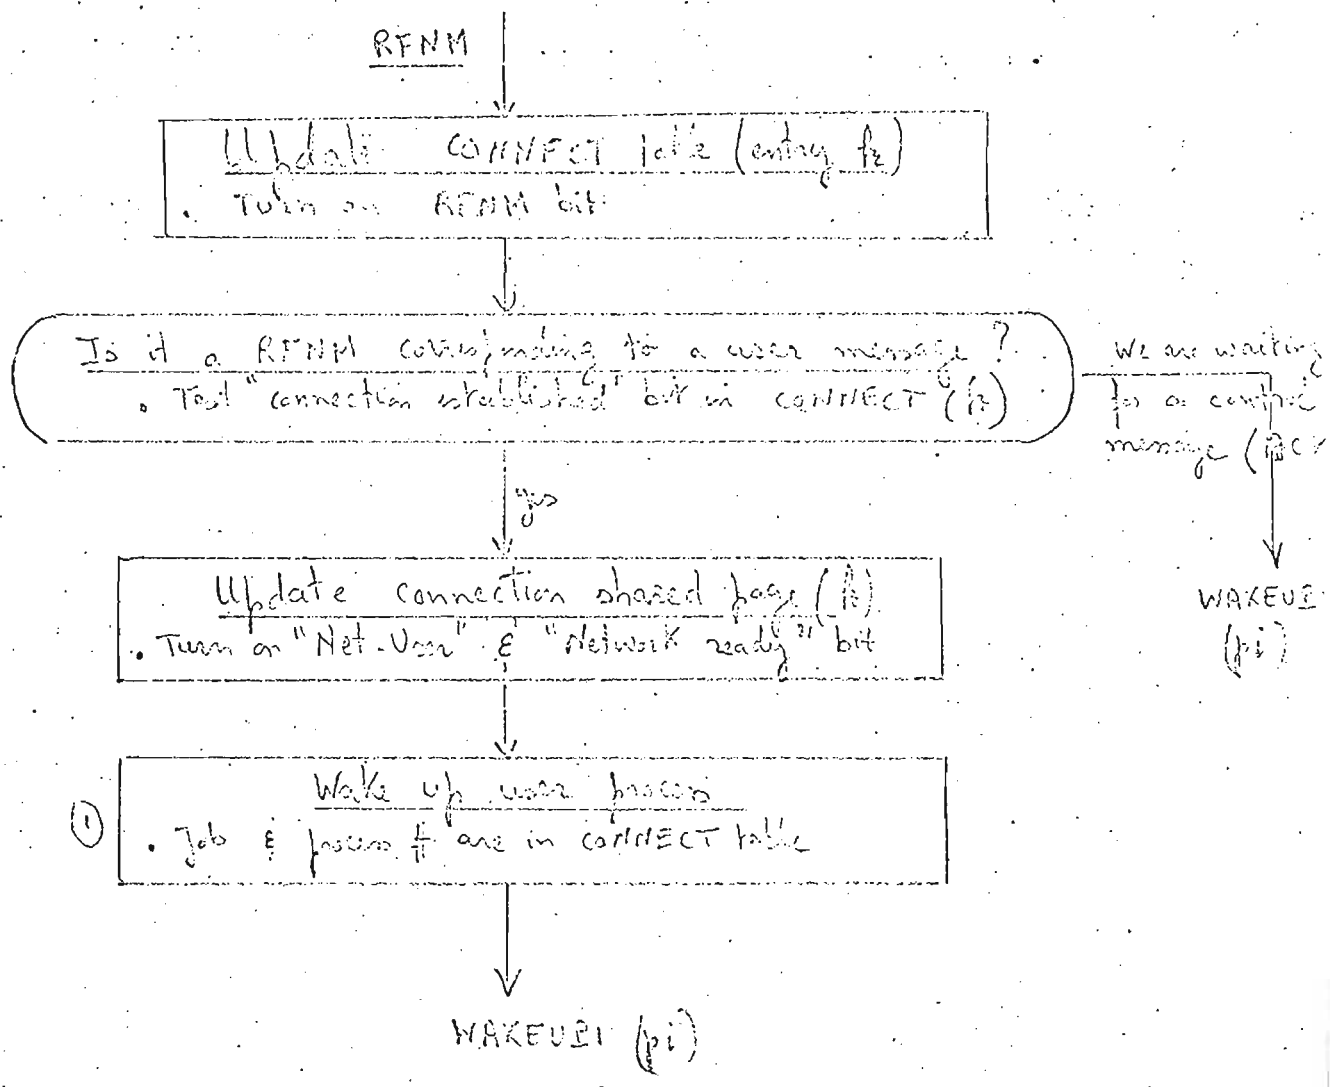 RFNM
Update CONNECT table (entry k)
. Turn on RFNM bit
Is it a RFNM corresponding to a user message ?
. Test "connection established" bit in CONNECT (k)
We are waiting
for a control
message (ACK
yes
Update connection shared page (k)
. Turn on "Net-User" & "Network ready" bit
WAKEUP1
(pi)
Wake up user process
1 . Job & process # are in CONNECT table
WAKEUP1 (pi)